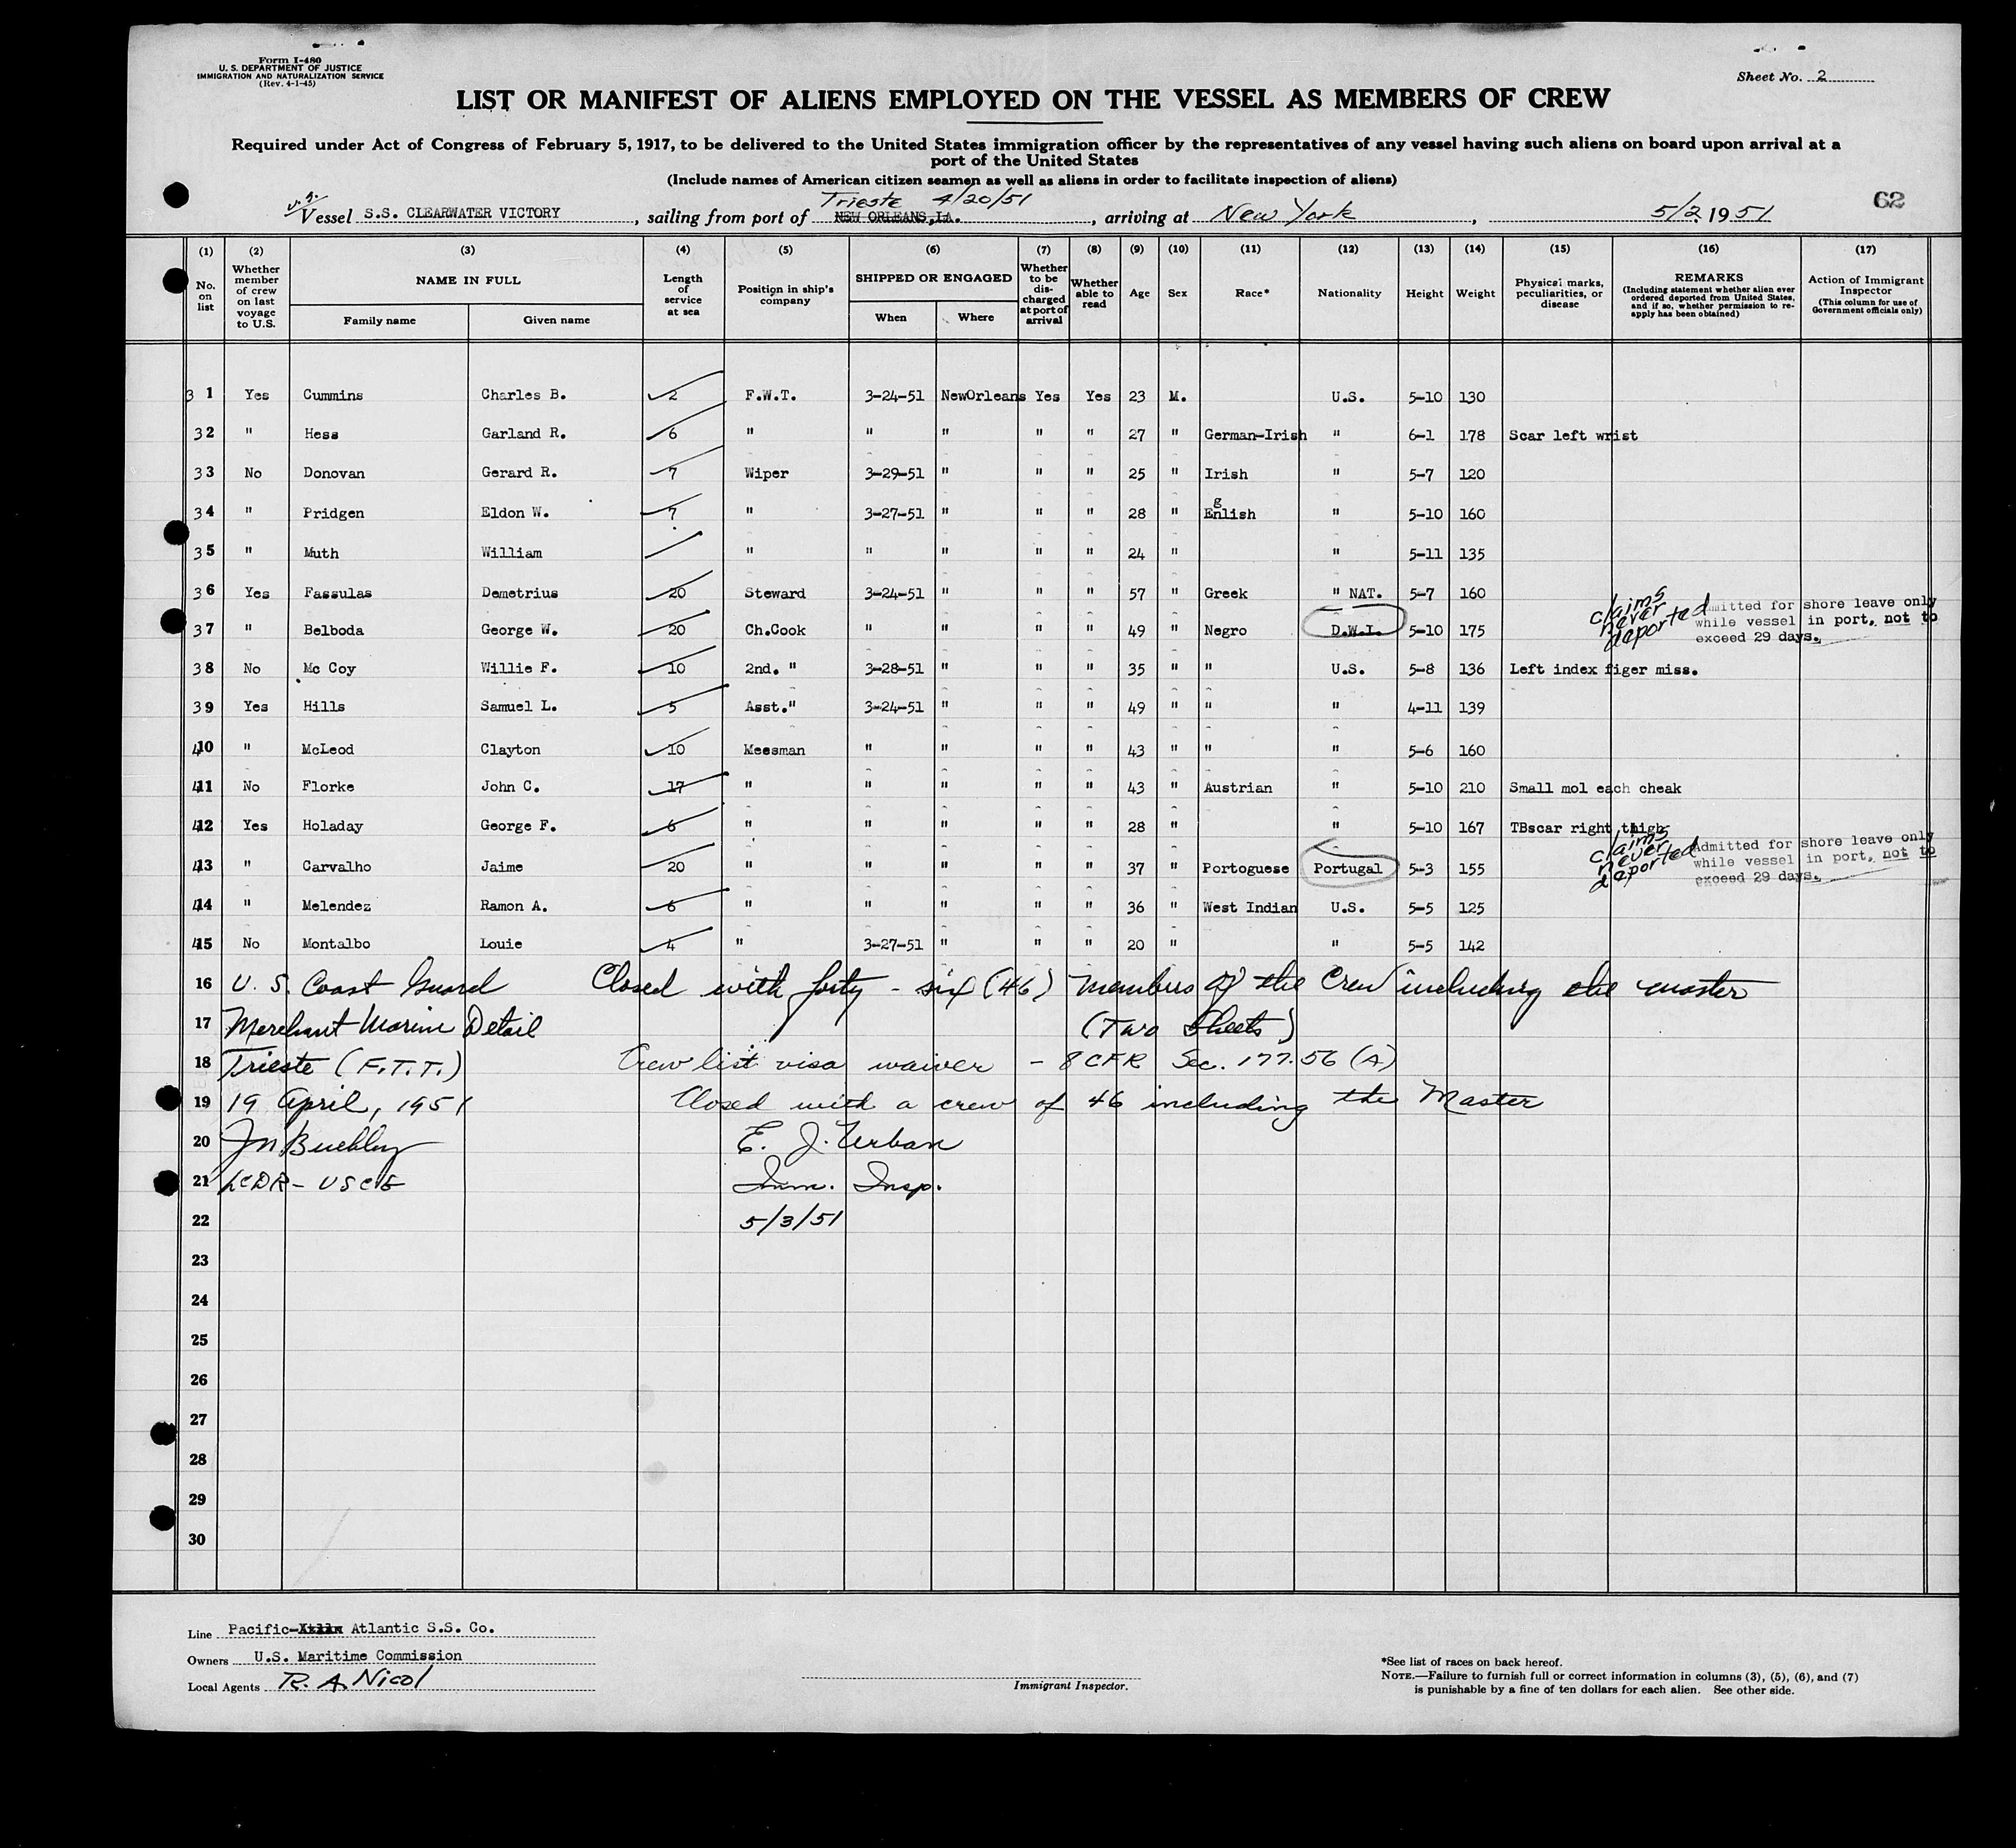 Form I-480
U. S. DEPARTMENT OF JUSTICE
IMMIGRATION AND NATURALIZATION SERVICE
(Rev. 4-1-45)
Sheet No. 2
LIST OR MANIFEST OF ALIENS EMPLOYED ON THE VESSEL AS MEMBERS OF CREW
Required under Act of Congress of February 5, 1917, to be delivered to the United States immigration officer by the representatives of any vessel having such aliens on board upon arrival at a
port of the United States
(Include names of American citizen seamen as well as aliens in order to facilitate inspection of aliens)
Trieste 4/20/51
Vessel S.S. CLEARWATER VICTORY, sailing from port of NEW ORLEANS, LA., arriving at New York, 5/2 1951
62
(1) (2) (3) (4) (5) (6) (7) (8) (9) (10) (11) (12) (13) (14) (15) (16) (17)
No. on list
Whether member of crew on last voyage to U.S.
NAME IN FULL
Family name Given name
Length of service at sea
Position in ship's company
SHIPPED OR ENGAGED
When Where
Whether to be discharged at port of arrival
Whether able to read
Age
Sex
Race*
Nationality
Height
Weight
Physical marks, peculiarities, or disease
REMARKS
(Including statement whether alien ever ordered deported from United States, and if so, whether permission to re-apply has been obtained)
Action of Immigrant Inspector
(This column for use of Government officials only)
31 Yes Cummins Charles B. 2 F.W.T. 3-24-51 NewOrleans Yes Yes 23 M. U.S. 5-10 130
32 " Hess Garland R. 6 " " " " " 27 " German-Irish " 6-1 178 Scar left wrist
33 No Donovan Gerard R. 7 Wiper 3-29-51 " " " 25 " Irish " 5-7 120
g
34 " Pridgen Eldon W. 7 " 3-27-51 " " " 28 " Enlish " 5-10 160
35 " Muth William " " " " " 24 " " 5-11 135
36 Yes Fassulas Demetrius 20 Steward 3-24-51 " " " 57 " Greek " NAT. 5-7 160
37 " Belboda George W. 20 Ch.Cook " " " " 49 " Negro D.W.I. 5-10 175 claims never deported Admitted for shore leave only
while vessel in port, not to
exceed 29 days.
38 No Mc Coy Willie F. 10 2nd. " 3-28-51 " " " 35 " " U.S. 5-8 136 Left index figer miss.
39 Yes Hills Samuel L. 5 Asst." 3-24-51 " " " 49 " " " 4-11 139
410 " McLeod Clayton 10 Messman " " " " 43 " " " 5-6 160
411 No Florke John C. 17 " " " " " 43 " Austrian " 5-10 210 Small mol each cheak
412 Yes Holaday George F. 6 " " " " " 28 " " 5-10 167 TBscar right thigh
413 " Carvalho Jaime 20 " " " " " 37 " Portoguese Portugal 5-3 155 claims never deported Admitted for shore leave only
while vessel in port, not to
exceed 29 days.
414 " Melendez Ramon A. 6 " " " " " 36 " West Indian U.S. 5-5 125
415 No Montalbo Louie 4 " 3-27-51 " " " 20 " " 5-5 142
16 U. S. Coast Guard Closed with forty-six (46) members of the Crew including the master
17 Merchant Marine Detail (Two Sheets)
18 Trieste (F.T.T.) Crew list visa waiver - 8 CFR Sec. 177.56 (A)
19 19 April, 1951 Closed with a crew of 46 including the Master
20 E. J. Urban
21 LCDR - USCG Imm. Insp.
22 5/3/51
23
24
25
26
27
28
29
30
Line Pacific- Atlantic S.S. Co.
Owners U.S. Maritime Commission
Local Agents R. A. Nicol
Immigrant Inspector.
*See list of races on back hereof.
NOTE.—Failure to furnish full or correct information in columns (3), (5), (6), and (7)
is punishable by a fine of ten dollars for each alien. See other side.